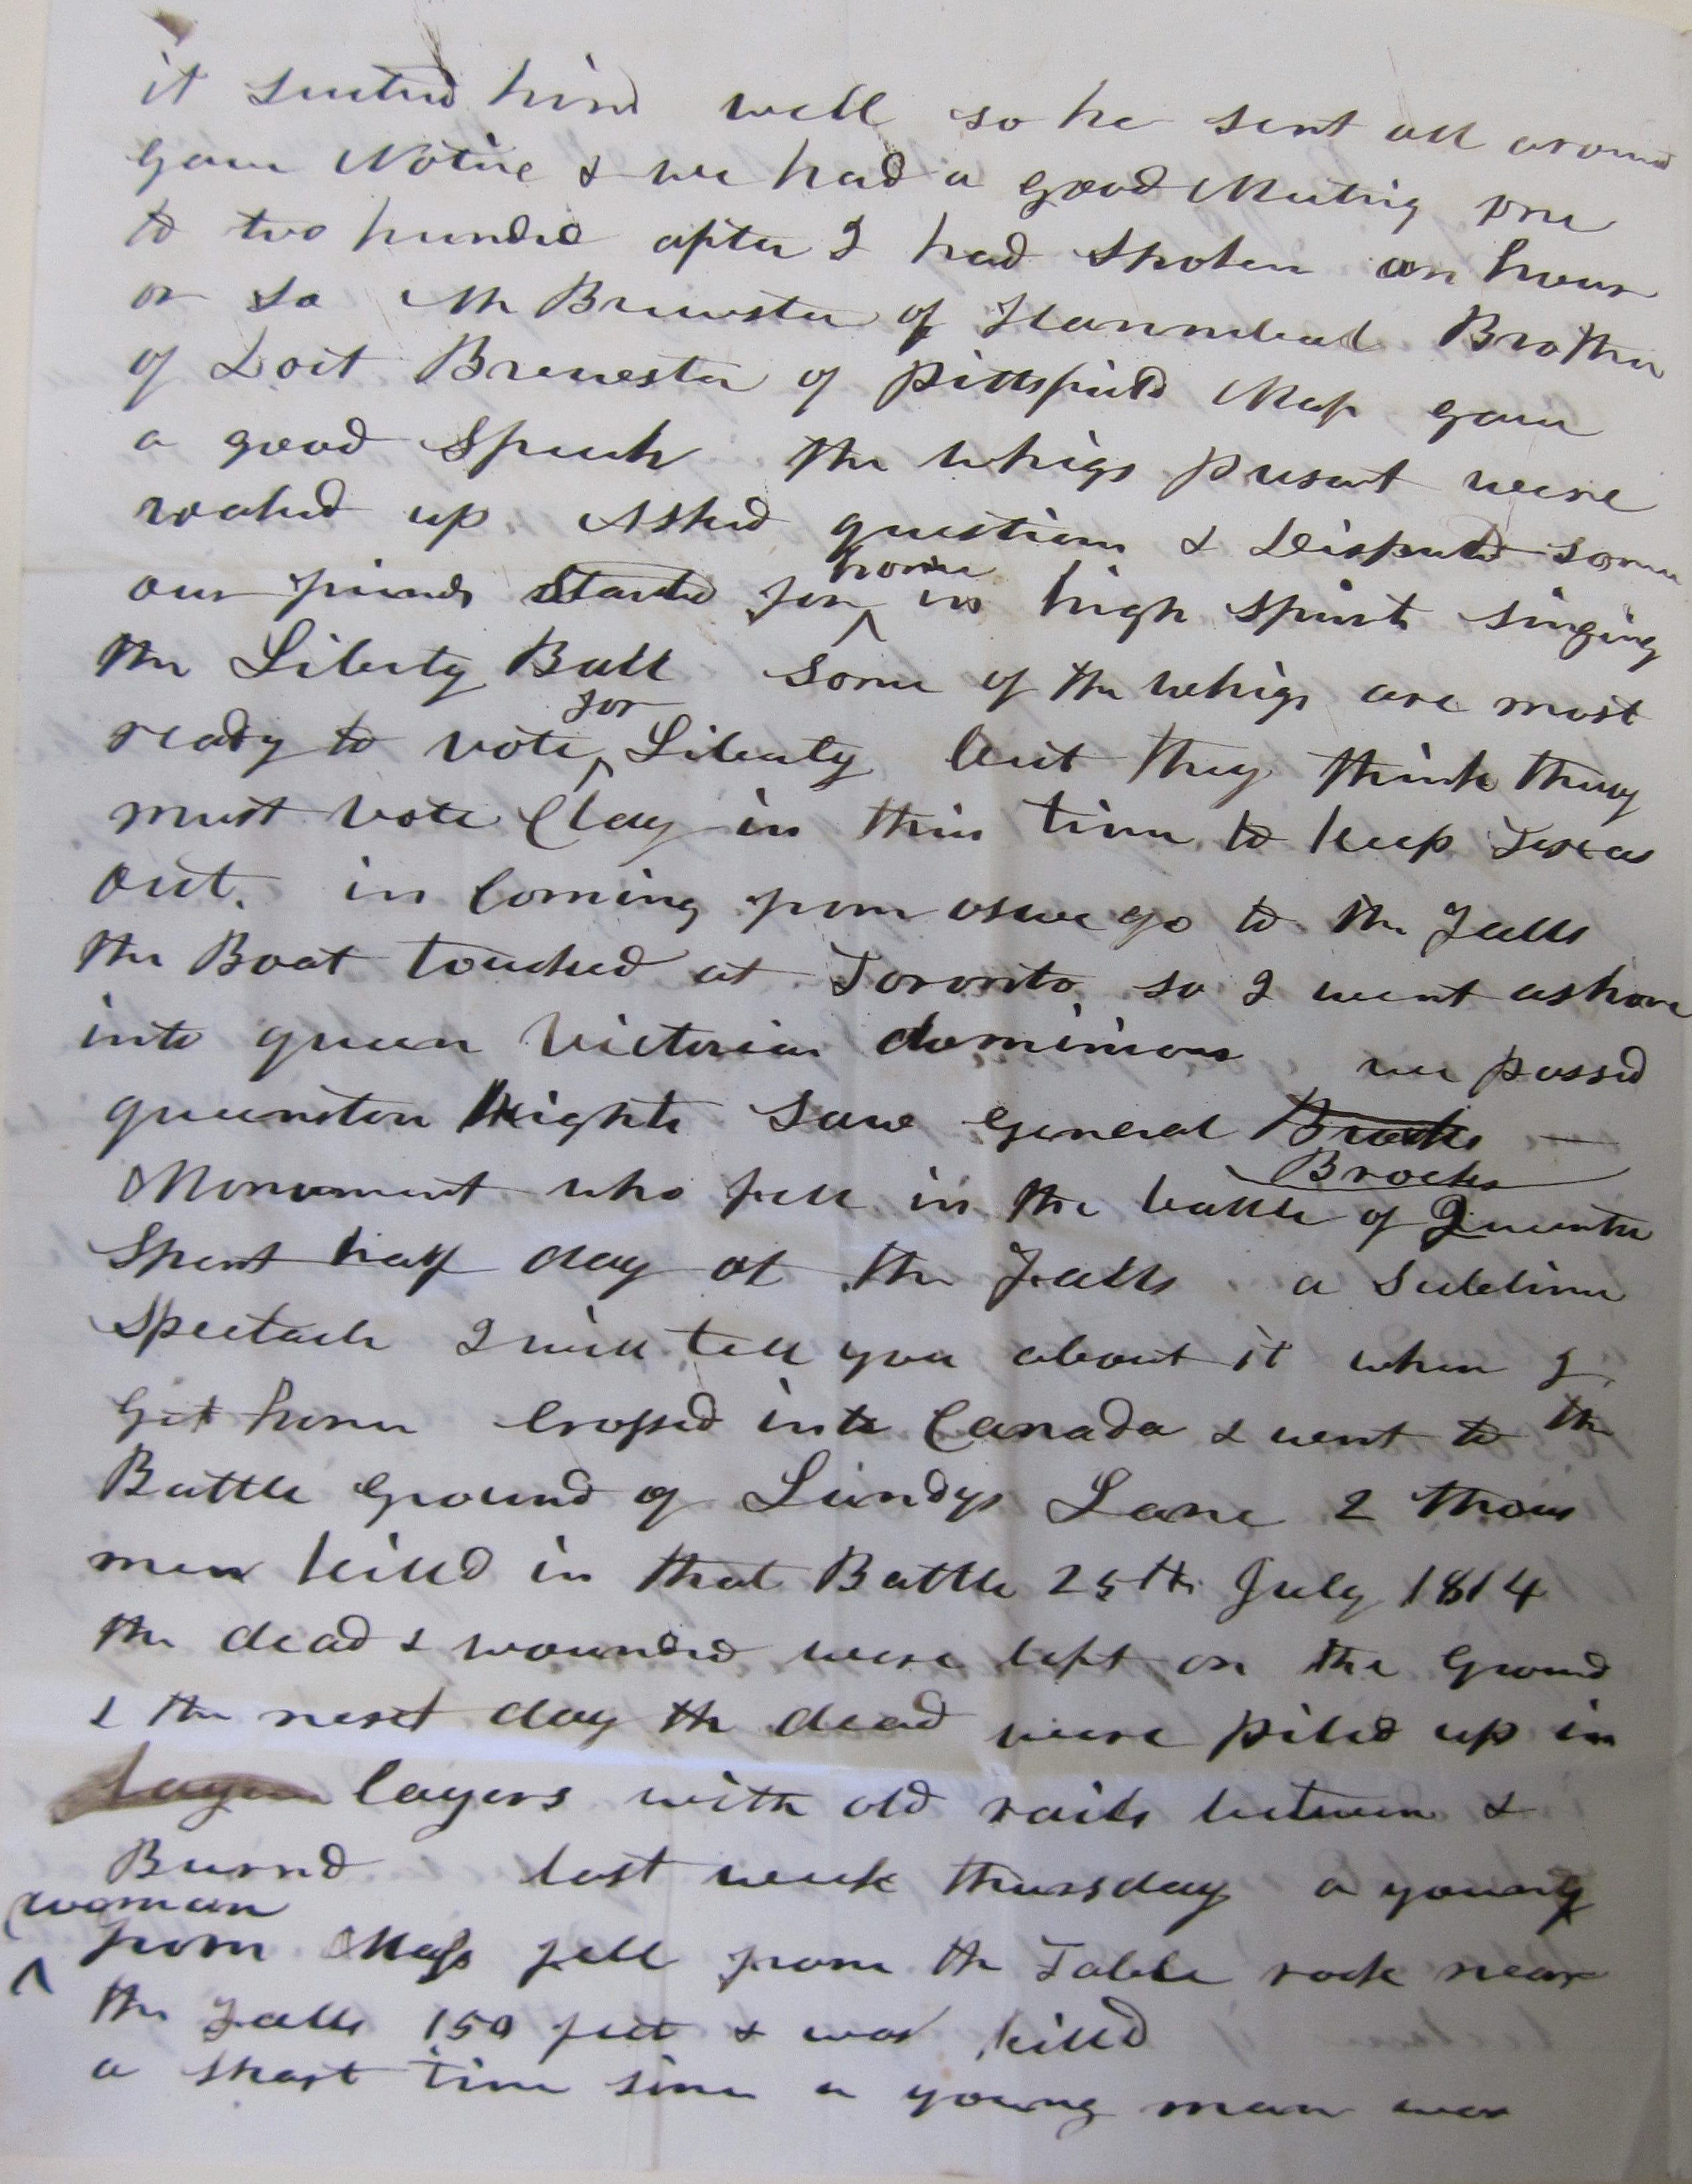 it suited him well so he sent all around
gave Notice & we had a good Meeting one
to two hundred after I had spoken an hour
or so Mr Brewster of Hannibal Brother
of Doct Brewester of Pittsfield Mass gave
a good Speech the whigs present were
waked up Asked questions & Disputed some
our friends started for home in high spirits singing
the Liberty Ball some of the whigs are most
ready to vote for Liberty but they think they
must vote Clay in this time to keep Texas
out. in Coming from oswego to the Falls
the Boat touched at Toronto so I went ashore
into queen Victorias dominions we passed
queenston Heights Saw General Brocks
Monument who fell in the battle of Queenston
Spent half day at the Falls a Sublime
Spectacle I will tell you about it when I
Get home Crossed into Canada & went to the
Battle Ground of Lundys Lane 2 thous
men killed in that Battle 25th July 1814
the dead & wounded were left on the Ground
& the next day the dead were piled up in
layers layers with old rails between &
Burnd last week thursday a young
woman from Mass fell from the Table rock near
the Falls 150 feet & was killed
a short time since a young man was